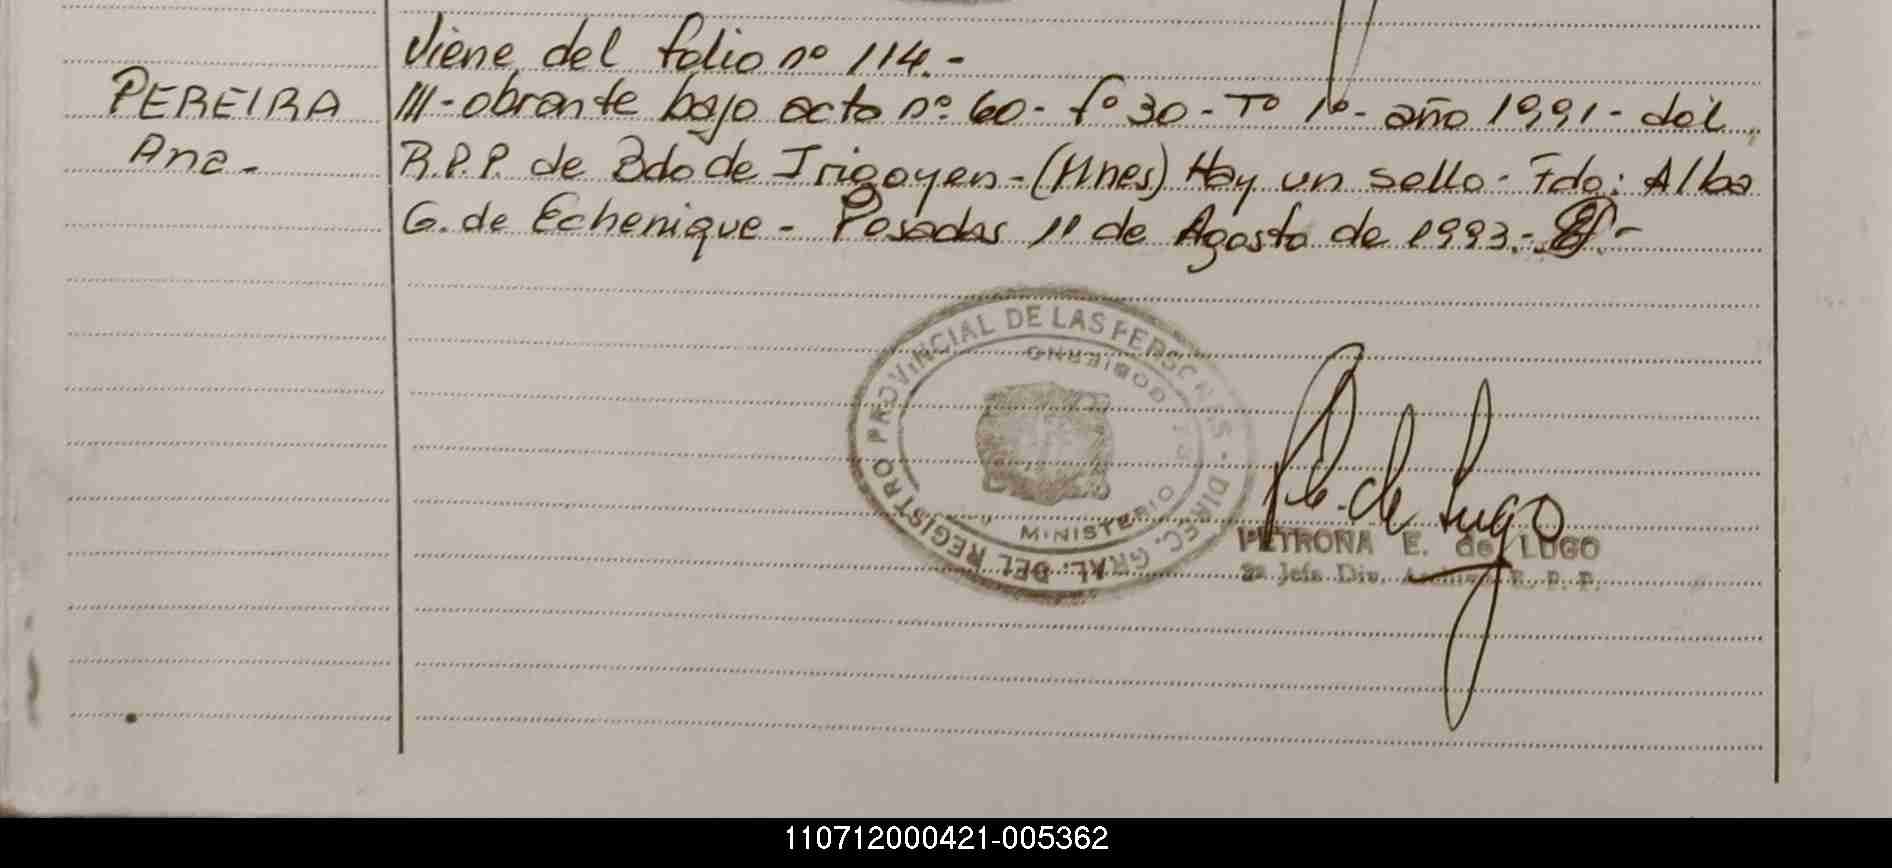 Viene del folio nº 114.-
PEREIRA
Ana-
III-obrante bajo acta nº 60- fº 30-Tº 1º- año 1991- del
R.P.P. de Bdo de Irigoyen-(Mnes) Hay un sello- Fdo: Alba
G. de Echenique- Posadas 11 de Agosto de 1993.-
DIREC. GRAL. DEL REGISTRO PROVINCIAL DE LAS PERSONAS -
MINISTERIO DE GOBIERNO
P. de Lugo
PETRONA E. de LUGO
2ª Jefa Div. Archivo R. P. P.
110712000421-005362